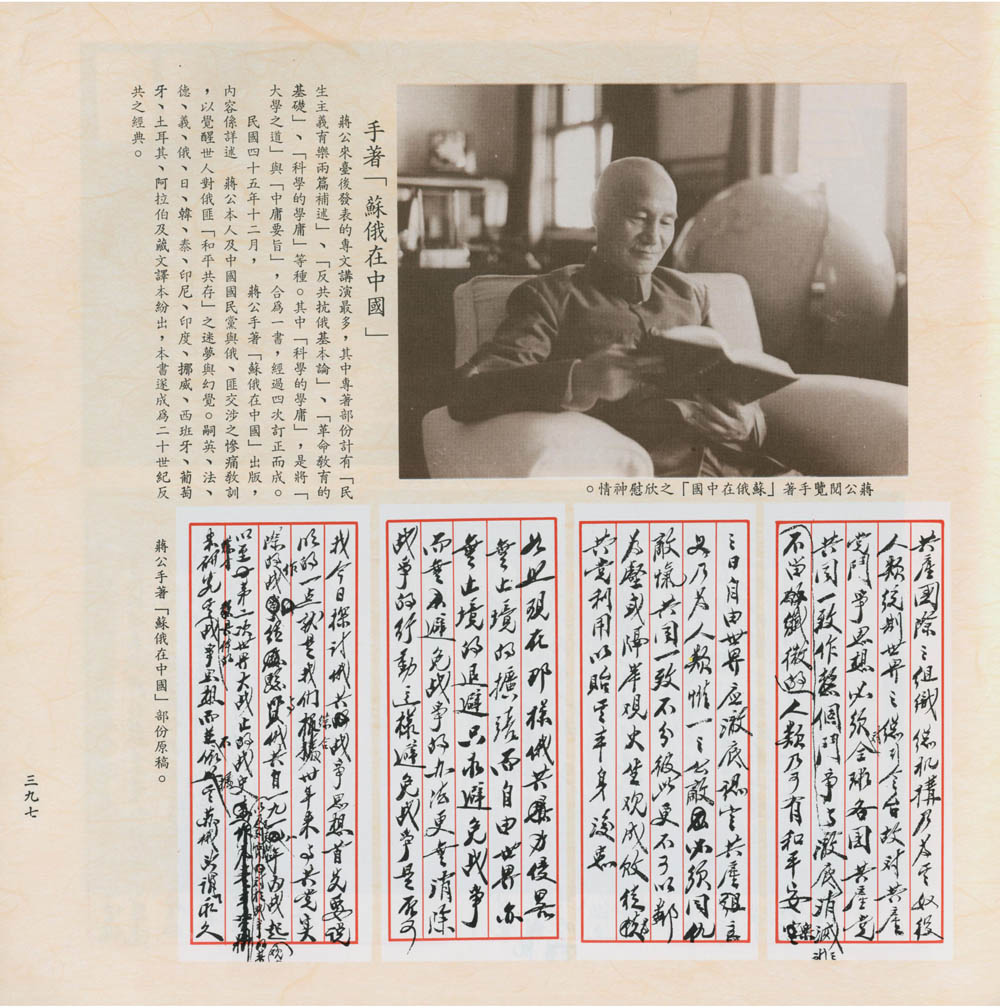 手著「蘇俄在中國」
蔣公來臺後發表的專文講演最多，其中專著部份計有「民
生主義育樂兩篇補述」、「反共抗俄基本論」、「革命教育的
基礎」、「科學的學庸」等種。其中「科學的學庸」，是將「
大學之道」與「中庸要旨」，合爲一書，經過四次訂正而成。
民國四十五年十二月，　蔣公手著「蘇俄在中國」出版，
內容係詳述　蔣公本人及中國國民黨與俄、匪交涉之慘痛教訓
，以覺醒世人對俄匪「和平共存」之迷夢與幻覺。嗣英、法、
德、義、俄、日、韓、泰、印尼、印度、挪威、西班牙、葡萄
牙、土耳其、阿拉伯及藏文譯本紛出，本書遂成爲二十世紀反
共之經典。
蔣公閱覽手著「蘇俄在中國」之欣慰神情。
共產國際之組織總機構乃為其奴役
人類統制世界之總司令台故對共產
黨鬥爭思想必須全球各國共產黨
共同一致作整個鬥爭與澈底消滅
不留纖微人類乃可有和平安
三曰自由世界應澈底認定共產
又乃為人類惟一之公敵必須同仇
敵愾共同一致不分彼此更不可以鄰
為壑或隔岸觀火坐觀成敗徒被
共黨利用以貽其本身後患
如此現在那樣俄共暴力侵略
無止境的擴張而自由世界亦
無止境的退避只求避免戰爭
而無避免戰爭的辦法更無消除
戰爭的行動這樣避免戰爭是否可
我今日探討俄共戰爭思想首先要說
明的一點就是我們根據卅年來與共黨實
際作戰經驗俄共自一九一年內戰起
以至第二次世界大戰止的戰史
來研究其戰爭思想而
蔣公手著「蘇俄在中國」部份原稿。
三九七